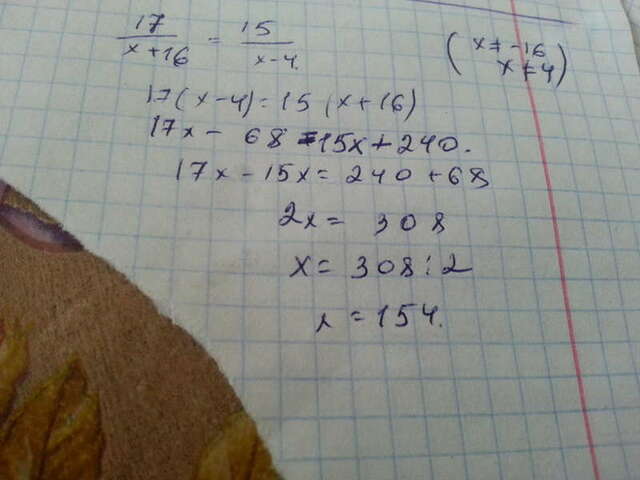 17/(x+16) = 15/(x-4.) (x≠-16
x≠4)
17(x-4)=15(x+16)
17x-68=15x+240.
17x-15x=240+68
2x=308
x=308:2
x=154.